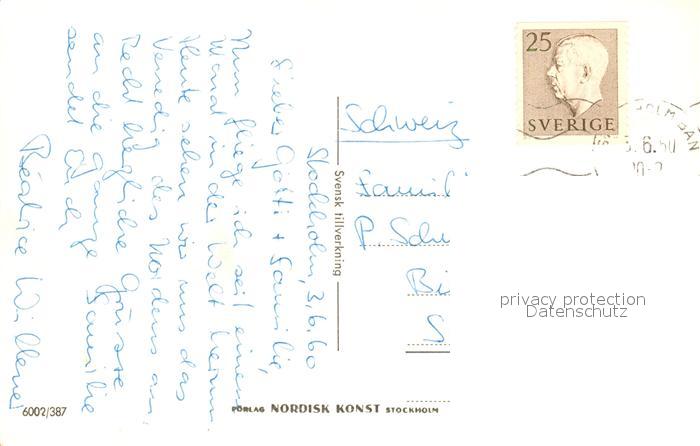 Stockholm, 3.6.60
Lieber Götti + Familie,
Nun fliege ich seit einem
Monat in der Welt herum
Heute sehen wir uns das
Venedig des Nordens an.
Recht herzliche Grüsse
an die ganze Familie
sendet Euch
Béatrice
Schweiz
Famil
P. Schu
Bi
S
Svensk tillverkning
25
SVERIGE
6.60
privacy protection
Datenschutz
6002/387
FÖRLAG NORDISK KONST STOCKHOLM